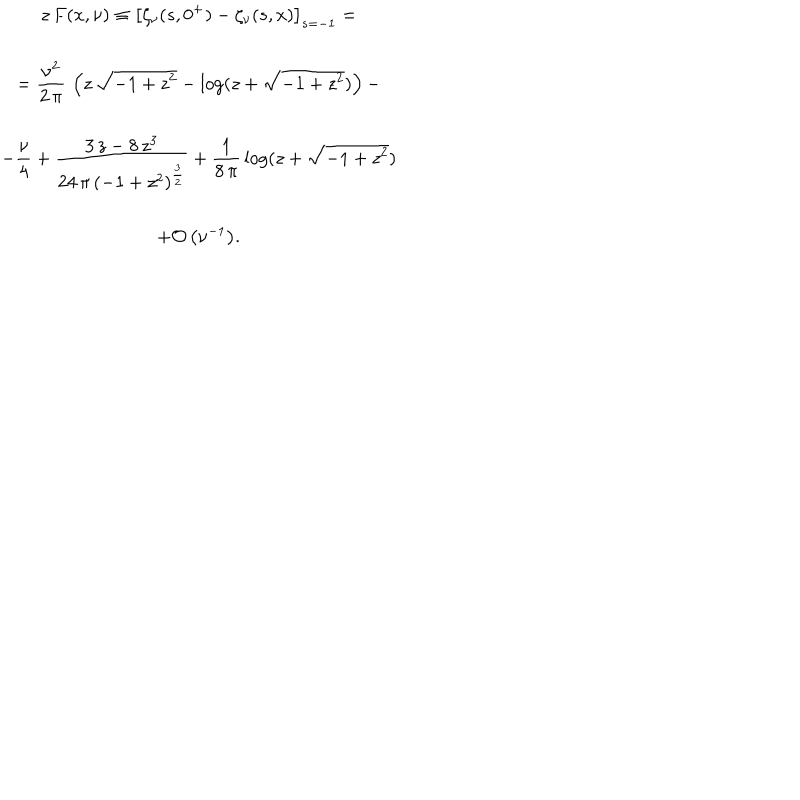 z F(x, ν) ≡ [ζ_ν(s, 0⁺) − ζ_ν(s, x)]_{s=−1} =
= \frac{ν²}{2 π} (z √(−1 + z²) − log(z + √(−1 + z²))) −
−\frac{ν}{4} + \frac{3 z − 8 z³}{24 π (−1 + z²)^{\frac{3}{2}}} + \frac{1}{8 π} log(z + √(−1 + z²))
+O (ν⁻¹).